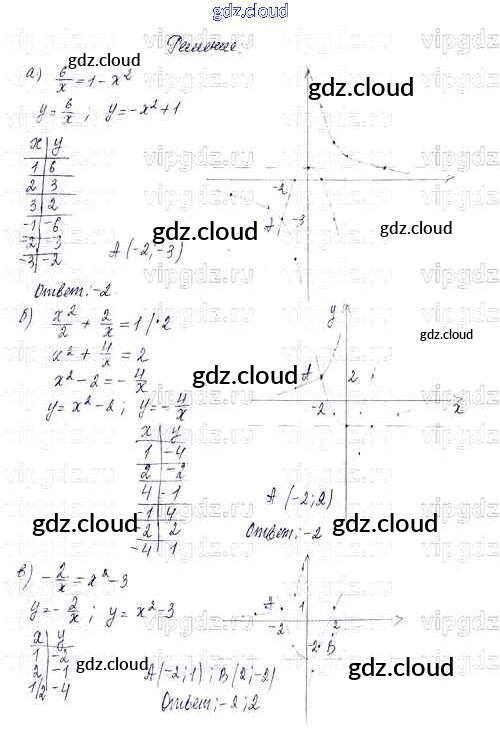 gdz.cloud
Решение.
а) 6/x = 1 - x²
y = 6/x ; y = -x² + 1
x | y
1 | 6
2 | 3
3 | 2
-1 | -6
-2 | -3
-3 | -2
A (-2; -3)
-2
A
-3
Ответ: -2
б) x²/2 + 2/x = 1 | · 2
x² + 4/x = 2
x² - 2 = - 4/x
y = x² - 2 ; y = - 4/x
x | y
1 | -4
2 | -2
4 | -1
-1 | 4
-2 | 2
-4 | 1
y
A
2
-2
x
A (-2; 2)
Ответ: -2
в) - 2/x = x² - 3
y = - 2/x ; y = x² - 3
x | y
1 | -2
2 | -1
1/2 | -4
A
1
-2
2
-2
B
A (-2; 1) ; B (2; -2)
Ответ: -2 ; 2
gdz.cloud
gdz.cloud
gdz.cloud
gdz.cloud
gdz.cloud
gdz.cloud
gdz.cloud
gdz.cloud
gdz.cloud
gdz.cloud